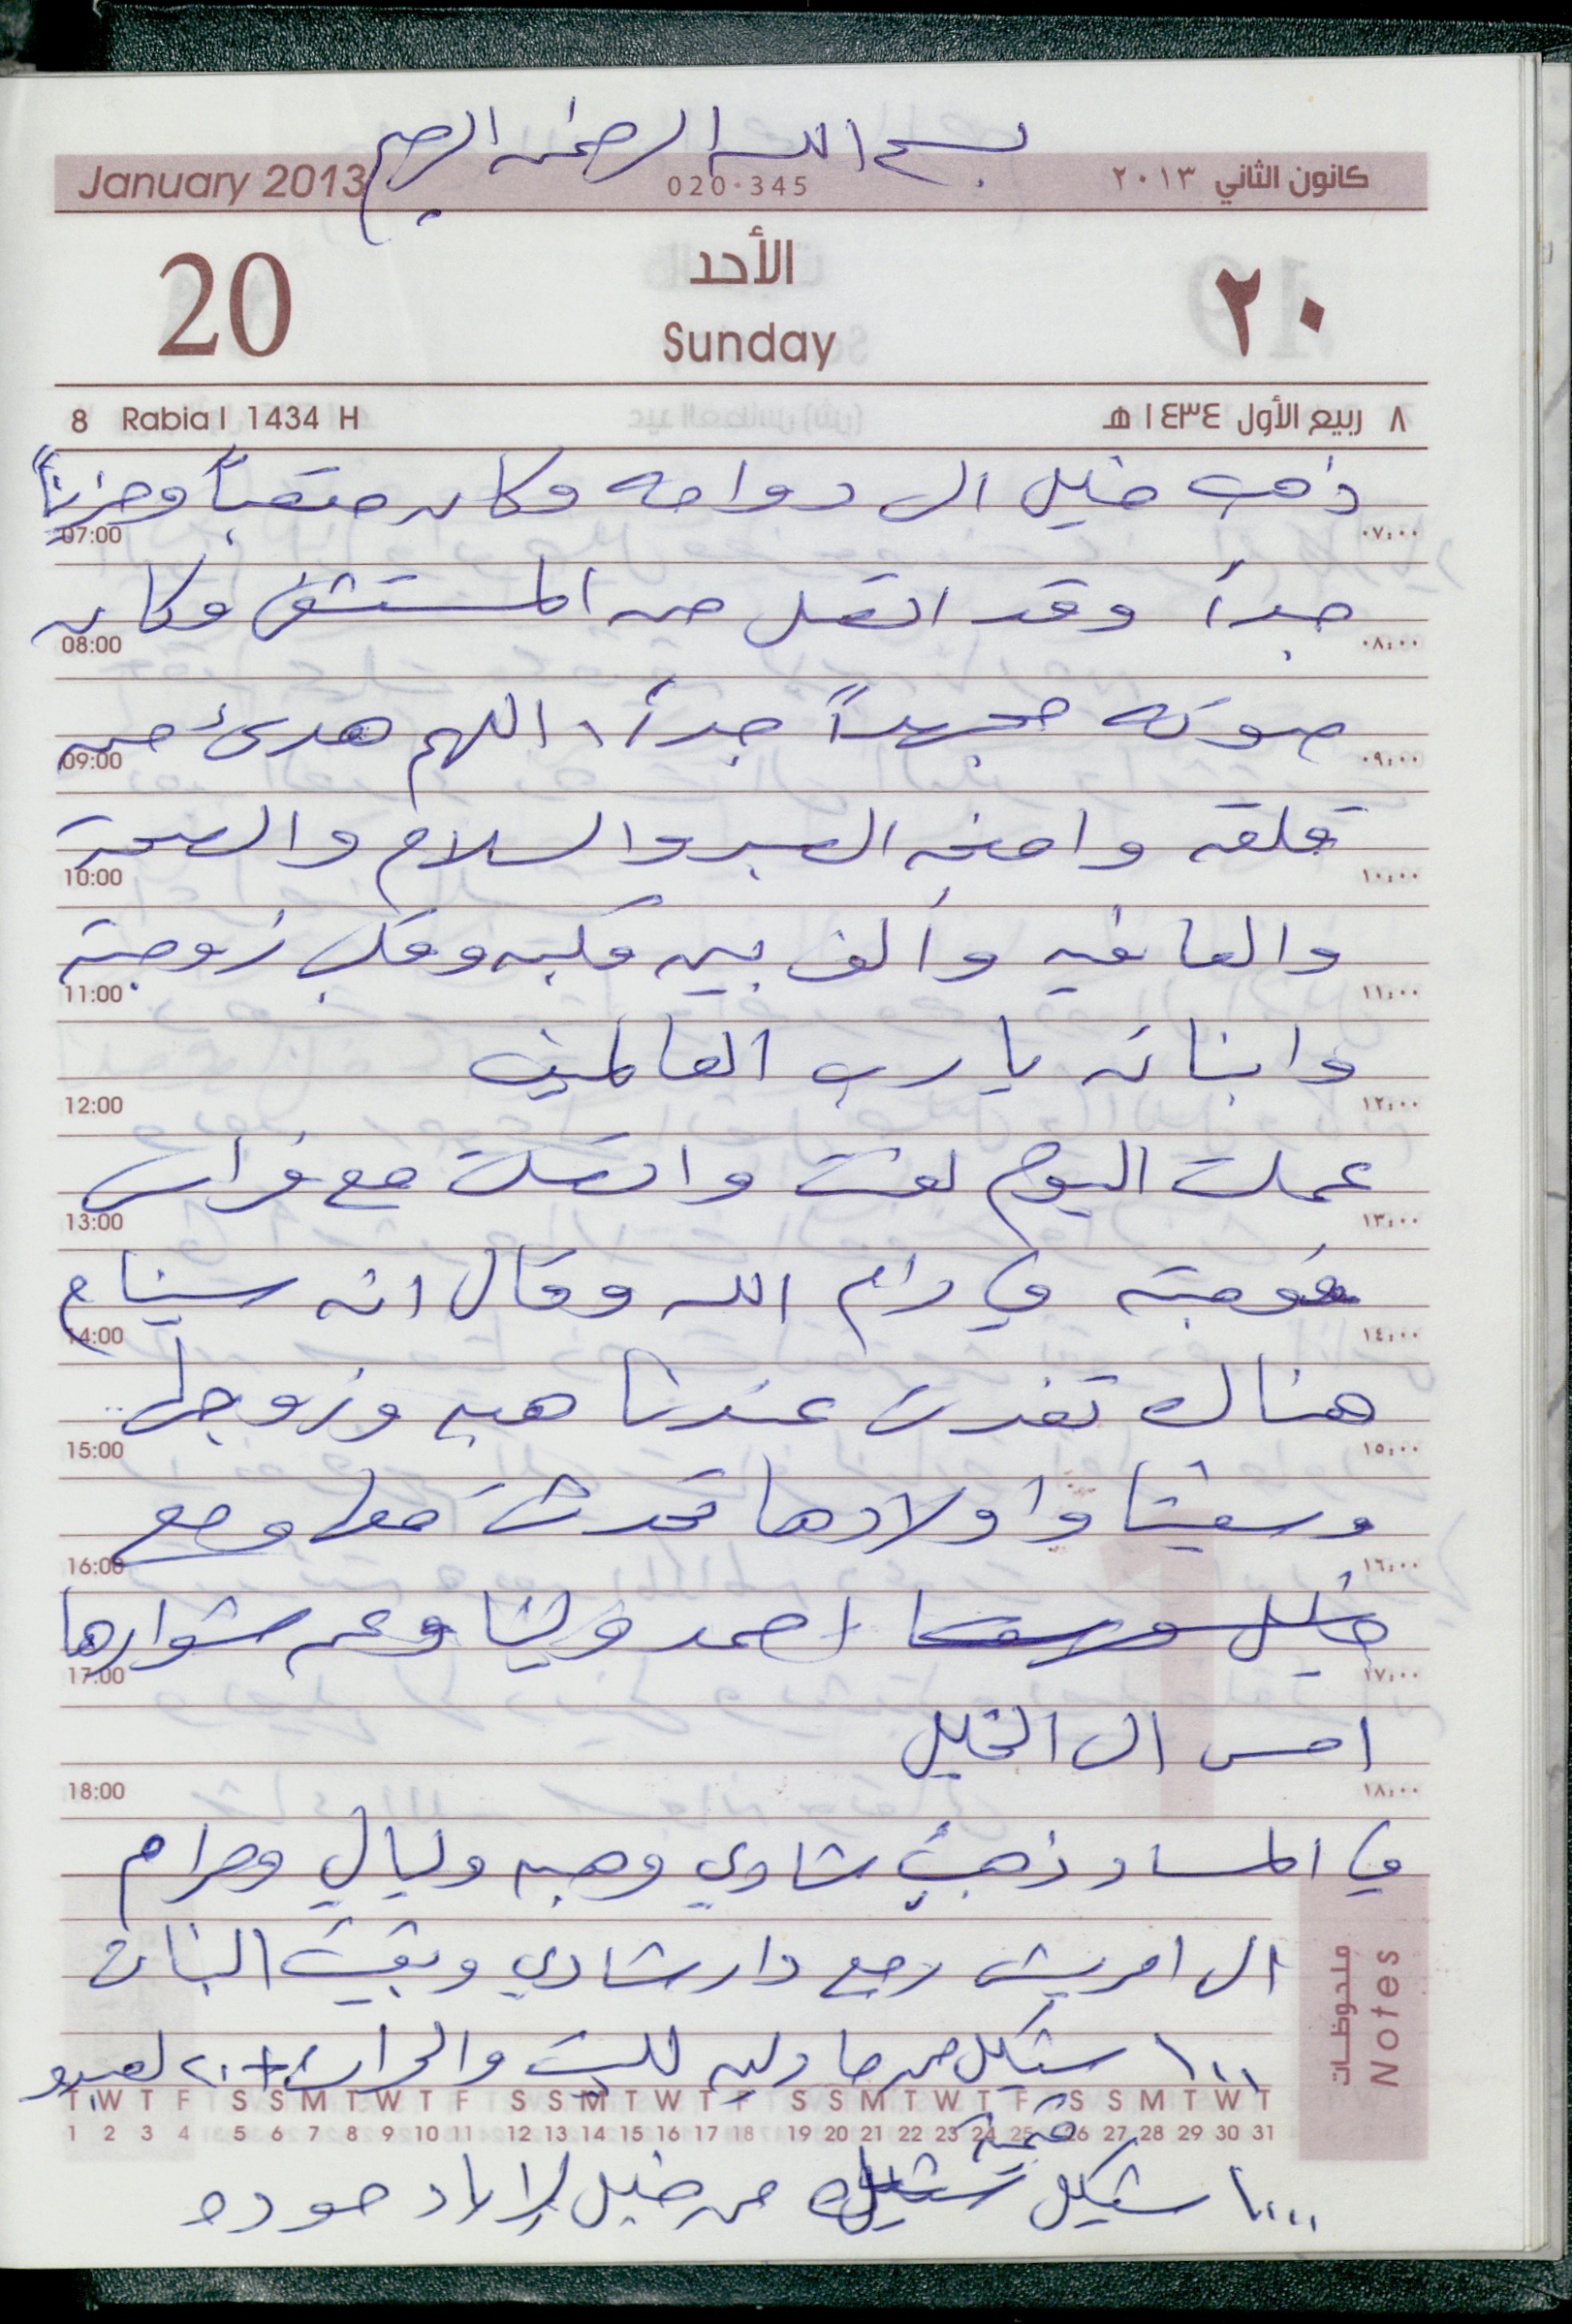 بسم الله الرحمن الرحيم
January 2013 020-345 كانون الثاني ٢٠١٣
20 الأحد ٢٠
Sunday
8 Rabia I 1434 H ٨ ربيع الأول ١٤٣٤ هـ
ذهب خليل الى دوامه وكان متعباً وحزيناً
07:00 ٠٧:٠٠
جداً وقد اتصل من المستشفى وكان
08:00 ٠٨:٠٠
صوته مجهداً جداً، اللهم هدئ من
09:00 ٠٩:٠٠
قلقه وامنحه الصبر والسلام والصحة
10:00 ١٠:٠٠
والعافيه وألف بين قلبه وقلب زوجته
11:00 ١١:٠٠
وابنائه يا رب العالمين
12:00 ١٢:٠٠
عملت اليوم لفت واتصلت مع فراس
13:00 ١٣:٠٠
فوجدته في رام الله وقال انه سينام
14:00 ١٤:٠٠
هناك تغدت عندنا هبه وزوجها
15:00 ١٥:٠٠
واولادها تحدثت معها ومع
16:00 ١٦:٠٠
خليل احمد ولينا وعن مشوارها
17:00 ١٧:٠٠
امس الى الخليل
18:00 ١٨:٠٠
في المساء ذهب شادي وهبه وليالي ومرام
الى امريش رجع دار شادي وبقيت البنات
١٠٠ شيكل من ماولين للبيت والحراث + ٢٠ لعبدو
ملحوظات Notes
T W T F S S M T W T F S S M T W T F S S M T W T F S S M T W T
1 2 3 4 5 6 7 8 9 10 11 12 13 14 15 16 17 18 19 20 21 22 23 24 25 26 27 28 29 30 31
قيمة
١٠٠٠ شيكل من خليل